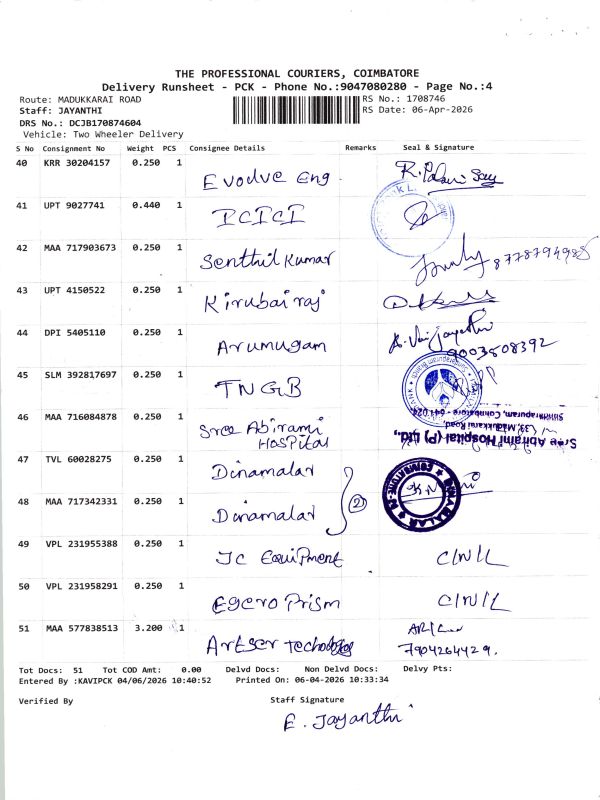 THE PROFESSIONAL COURIERS, COIMBATORE
Delivery Runsheet - PCK - Phone No.:9047080280 - Page No.:4
Route: MADUKKARAI ROAD RS No.: 1708746
Staff: JAYANTHI RS Date: 06-Apr-2026
DRS No.: DCJB170874604
Vehicle: Two Wheeler Delivery
S No Consignment No Weight PCS Consignee Details Remarks Seal & Signature
40 KRR 30204157 0.250 1 Evodve eng
41 UPT 9027741 0.440 1 ICICI
42 MAA 717903673 0.250 1 Senthil Kumar 8778794985
43 UPT 4150522 0.250 1 Kirubairaj
44 DPI 5405110 0.250 1 Arumugam 9003508392
45 SLM 392817697 0.250 1 TNGB
46 MAA 716084878 0.250 1 Sree Abirami Hospital
Sree Abirami Hospital (P) Ltd.,
33, Madukkarai Road,
Sundarapuram, Coimbatore - 641 024.
47 TVL 60028275 0.250 1 Dinamalar
48 MAA 717342331 0.250 1 Dinamalar (2)
DINAMALAR COIMBATORE
49 VPL 231955388 0.250 1 Jc Equipment C/N/L
50 VPL 231958291 0.250 1 Egero Prism C/N/L
51 MAA 577838513 3.200 1 7904264429.
Tot Docs: 51 Tot COD Amt: 0.00 Delvd Docs: Non Delvd Docs: Delvy Pts:
Entered By :KAVIPCK 04/06/2026 10:40:52 Printed On: 06-04-2026 10:33:34
Verified By Staff Signature
E. Jayanthi